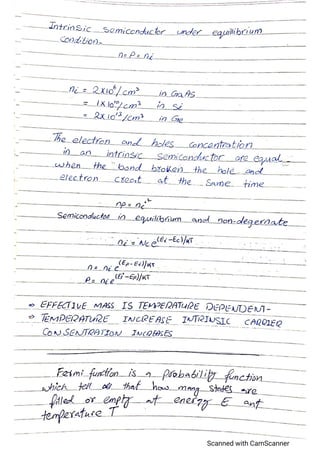 Intrinsic Semiconductor under equilibrium
Condition-
n=P=ni
ni = 2x10⁶/cm³ in GaAs
= 1x10¹⁰/cm³ in Si
= 2x10¹³/cm³ in Ge
The electron and holes concentration
in an intrinsic Semiconductor are equal-
when the bond broken the hole and
electron creat at the same time
np = ni²
Semiconductor in equilibrium and non-degernate
ni = Nc e^(Ei-Ec)/KT
n = ni e^(EF-Ei)/KT
P = ni e^(Ei-EF)/KT
→ EFFECTIVE MASS IS TEMPERATURE DEPENDENT-
→ TEMPERATURE INCREASE INTRINSIC CARRIER
CONSENTRATION INCREASES
Fermi function is a probability function
which tell that how many states are
filled or empty at energy E ant
temperature T
Scanned with CamScanner